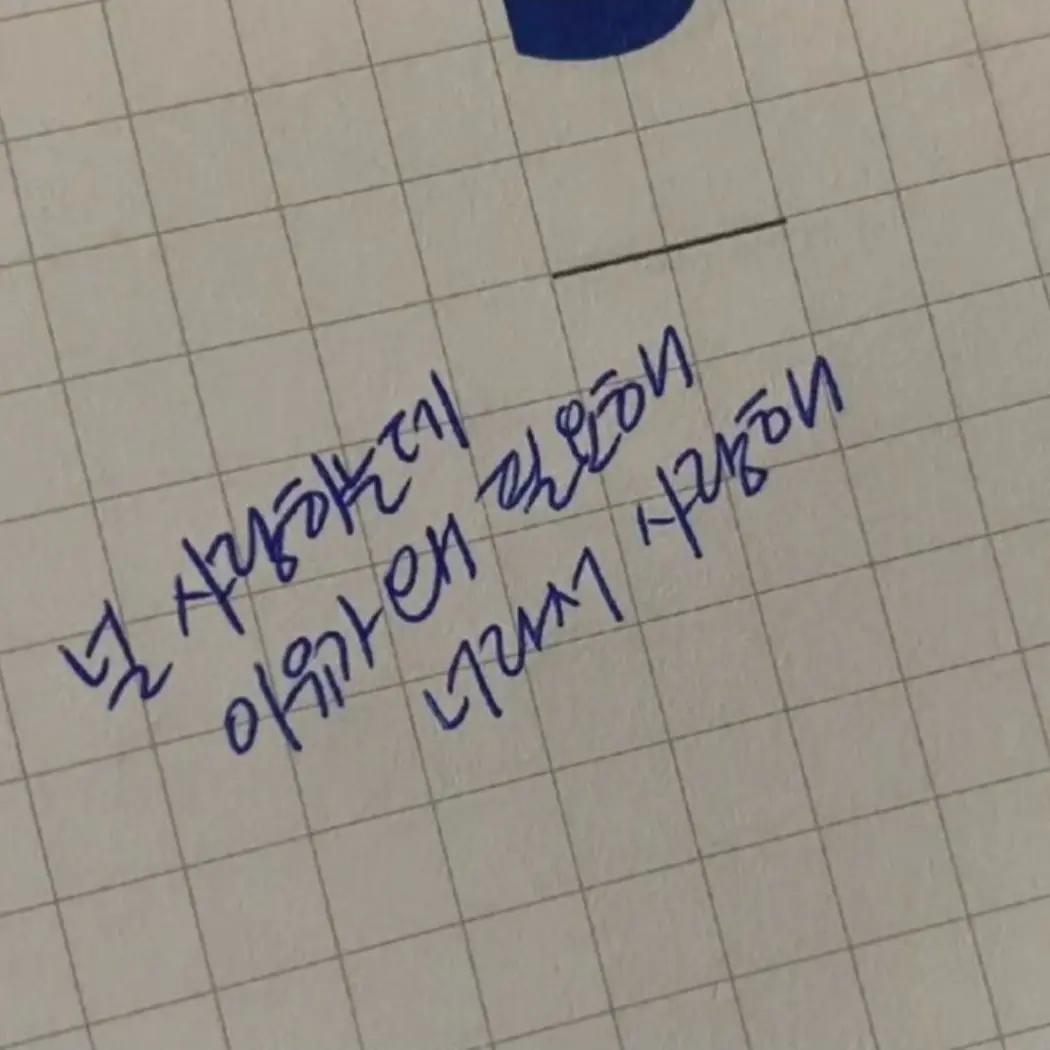 널 사랑하는데
이유가 왜 필요해
너라서 사랑해